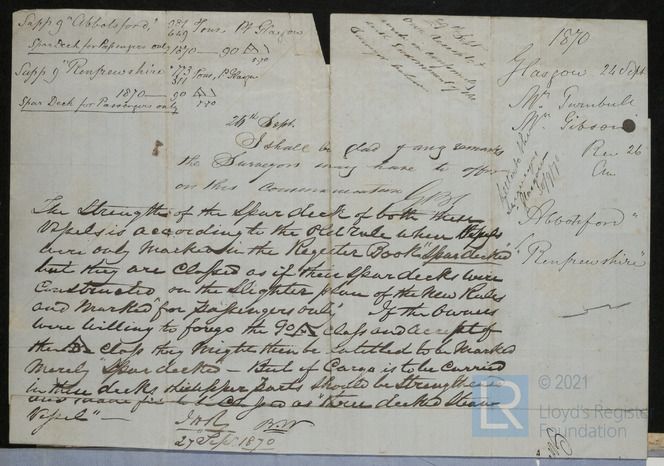 Supp 9 "Abbotsford,"
Tons, Pt Glasgow
Spar Deck for Passengers only 1870 — 90 A
5.70
Supp 9 "Renfrewshire
Tons, Pt Glasgow
1870 — 90 A
Spar Deck for Passengers only
7.70
26th Sept.
I shall be glad of any remarks
the Surveyors may have to offer
on this communication
The Strength of the Spar deck of both these
Vessels is according to the Old rule when Vessels
were only marked in the Register Book "Spar decked"
but they are classed as if their Spar decks were
constructed on the slighter plan of the New Rules
and marked "for passengers only" If the owners
were willing to forego the 90 A class and accept of
the class they might then be entitled to be marked
merely "Spar decked — But if Cargo is to be carried
in decks the upper parts should be strengthened
and made fit to be classed as "three decked Steam
Vessel" —
J H R B W
27 Sept. 1870
1870
Glasgow 24 Sept
Mr Turnbull
Mr Gibson
Rec 26
An.
"Abbotsford"
"Renfrewshire"
© 2021
LR
Lloyd's Register
Foundation